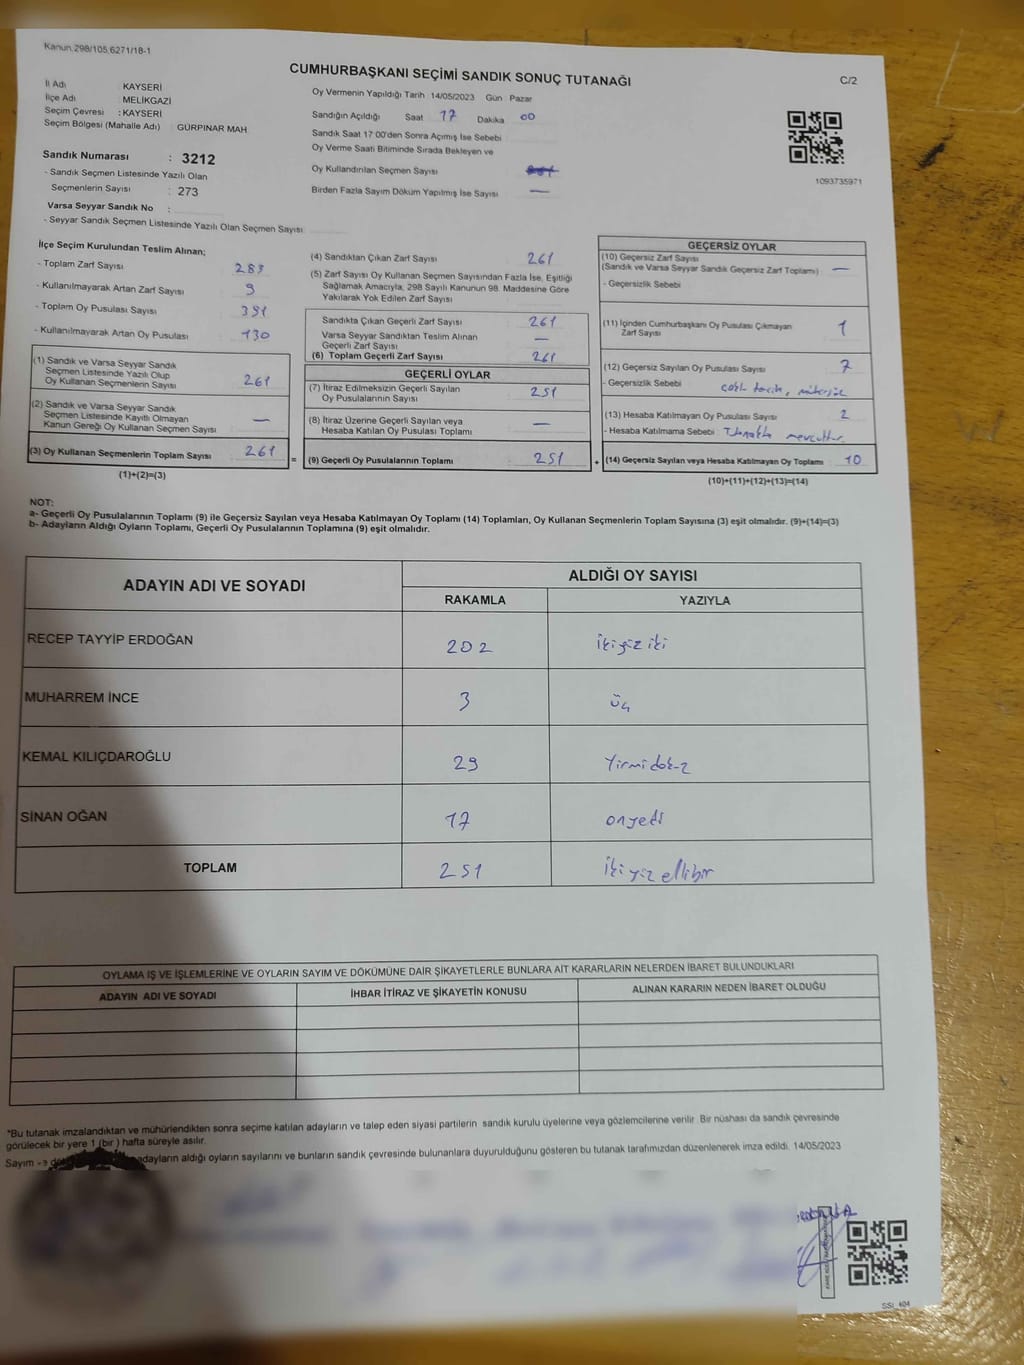 Kanun.298/105,6271/18-1
CUMHURBAŞKANI SEÇİMİ SANDIK SONUÇ TUTANAĞI
C/2
İl Adı : KAYSERİ
İlçe Adı : MELİKGAZİ
Seçim Çevresi : KAYSERİ
Seçim Bölgesi (Mahalle Adı) : GÜRPINAR MAH.
Oy Vermenin Yapıldığı Tarih :14/05/2023 Gün : Pazar
Sandığın Açıldığı Saat 17 Dakika 00
Sandık Saat 17:00'den Sonra Açımış İse Sebebi
Oy Verme Saati Bitiminde Sırada Bekleyen ve
Oy Kullandırılan Seçmen Sayısı
Birden Fazla Sayım Döküm Yapılmış İse Sayısı —
1093735971
Sandık Numarası : 3212
- Sandık Seçmen Listesinde Yazılı Olan
Seçmenlerin Sayısı : 273
Varsa Seyyar Sandık No :
- Seyyar Sandık Seçmen Listesinde Yazılı Olan Seçmen Sayısı:
İlçe Seçim Kurulundan Teslim Alınan;
- Toplam Zarf Sayısı 283
- Kullanılmayarak Artan Zarf Sayısı 9
- Toplam Oy Pusulası Sayısı 391
- Kullanılmayarak Artan Oy Pusulası 130
(1) Sandık ve Varsa Seyyar Sandık
Seçmen Listesinde Yazılı Olup
Oy Kullanan Seçmenlerin Sayısı 261
(2) Sandık ve Varsa Seyyar Sandık
Seçmen Listesinde Kayıtlı Olmayan
Kanun Gereği Oy Kullanan Seçmen Sayısı —
(3) Oy Kullanan Seçmenlerin Toplam Sayısı 261
(1)+(2)=(3)
(4) Sandıktan Çıkan Zarf Sayısı 261
(5) Zarf Sayısı Oy Kullanan Seçmen Sayısından Fazla İse, Eşitliği
Sağlamak Amacıyla, 298 Sayılı Kanunun 98. Maddesine Göre
Yakılarak Yok Edilen Zarf Sayısı
Sandıkta Çıkan Geçerli Zarf Sayısı 261
Varsa Seyyar Sandıktan Teslim Alınan
Geçerli Zarf Sayısı —
(6) Toplam Geçerli Zarf Sayısı 261
GEÇERLİ OYLAR
(7) İtiraz Edilmeksizin Geçerli Sayılan
Oy Pusulalarının Sayısı 251
(8) İtiraz Üzerine Geçerli Sayılan veya
Hesaba Katılan Oy Pusulası Toplamı —
= (9) Geçerli Oy Pusulalarının Toplamı 251 +
GEÇERSİZ OYLAR
(10) Geçersiz Zarf Sayısı
(Sandık ve Varsa Seyyar Sandık Geçersiz Zarf Toplamı) —
- Geçersizlik Sebebi
(11) İçinden Cumhurbaşkanı Oy Pusulası Çıkmayan
Zarf Sayısı 1
(12) Geçersiz Sayılan Oy Pusulası Sayısı 7
- Geçersizlik Sebebi
(13) Hesaba Katılmayan Oy Pusulası Sayısı 2
- Hesaba Katılmama Sebebi Tutanakta mevcuttur.
(14) Geçersiz Sayılan veya Hesaba Katılmayan Oy Toplamı 10
(10)+(11)+(12)+(13)=(14)
NOT:
a- Geçerli Oy Pusulalarının Toplamı (9) ile Geçersiz Sayılan veya Hesaba Katılmayan Oy Toplamı (14) Toplamları, Oy Kullanan Seçmenlerin Toplam Sayısına (3) eşit olmalıdır. (9)+(14)=(3)
b- Adayların Aldığı Oyların Toplamı, Geçerli Oy Pusulalarının Toplamına (9) eşit olmalıdır.
ADAYIN ADI VE SOYADI
ALDIĞI OY SAYISI
RAKAMLA YAZIYLA
RECEP TAYYİP ERDOĞAN 202 ikiyüz iki
MUHARREM İNCE 3 üç
KEMAL KILIÇDAROĞLU 29 Yirmidokuz
SİNAN OĞAN 17 onyedi
TOPLAM 251 ikiyüz ellibir
OYLAMA İŞ VE İŞLEMLERİNE VE OYLARIN SAYIM VE DÖKÜMÜNE DAİR ŞİKAYETLERLE BUNLARA AİT KARARLARIN NELERDEN İBARET BULUNDUKLARI
ADAYIN ADI VE SOYADI İHBAR İTİRAZ VE ŞİKAYETİN KONUSU ALINAN KARARIN NEDEN İBARET OLDUĞU
*Bu tutanak imzalandıktan ve mühürlendikten sonra seçime katılan adayların ve talep eden siyasi partilerin sandık kurulu üyelerine veya gözlemcilerine verilir. Bir nüshası da sandık çevresinde
görülecek bir yere 1 (bir ) hafta süreyle asılır.
Sayım adayların aldığı oyların sayılarını ve bunların sandık çevresinde bulunanlara duyurulduğunu gösteren bu tutanak tarafımızdan düzenlenerek imza edildi. 14/05/2023